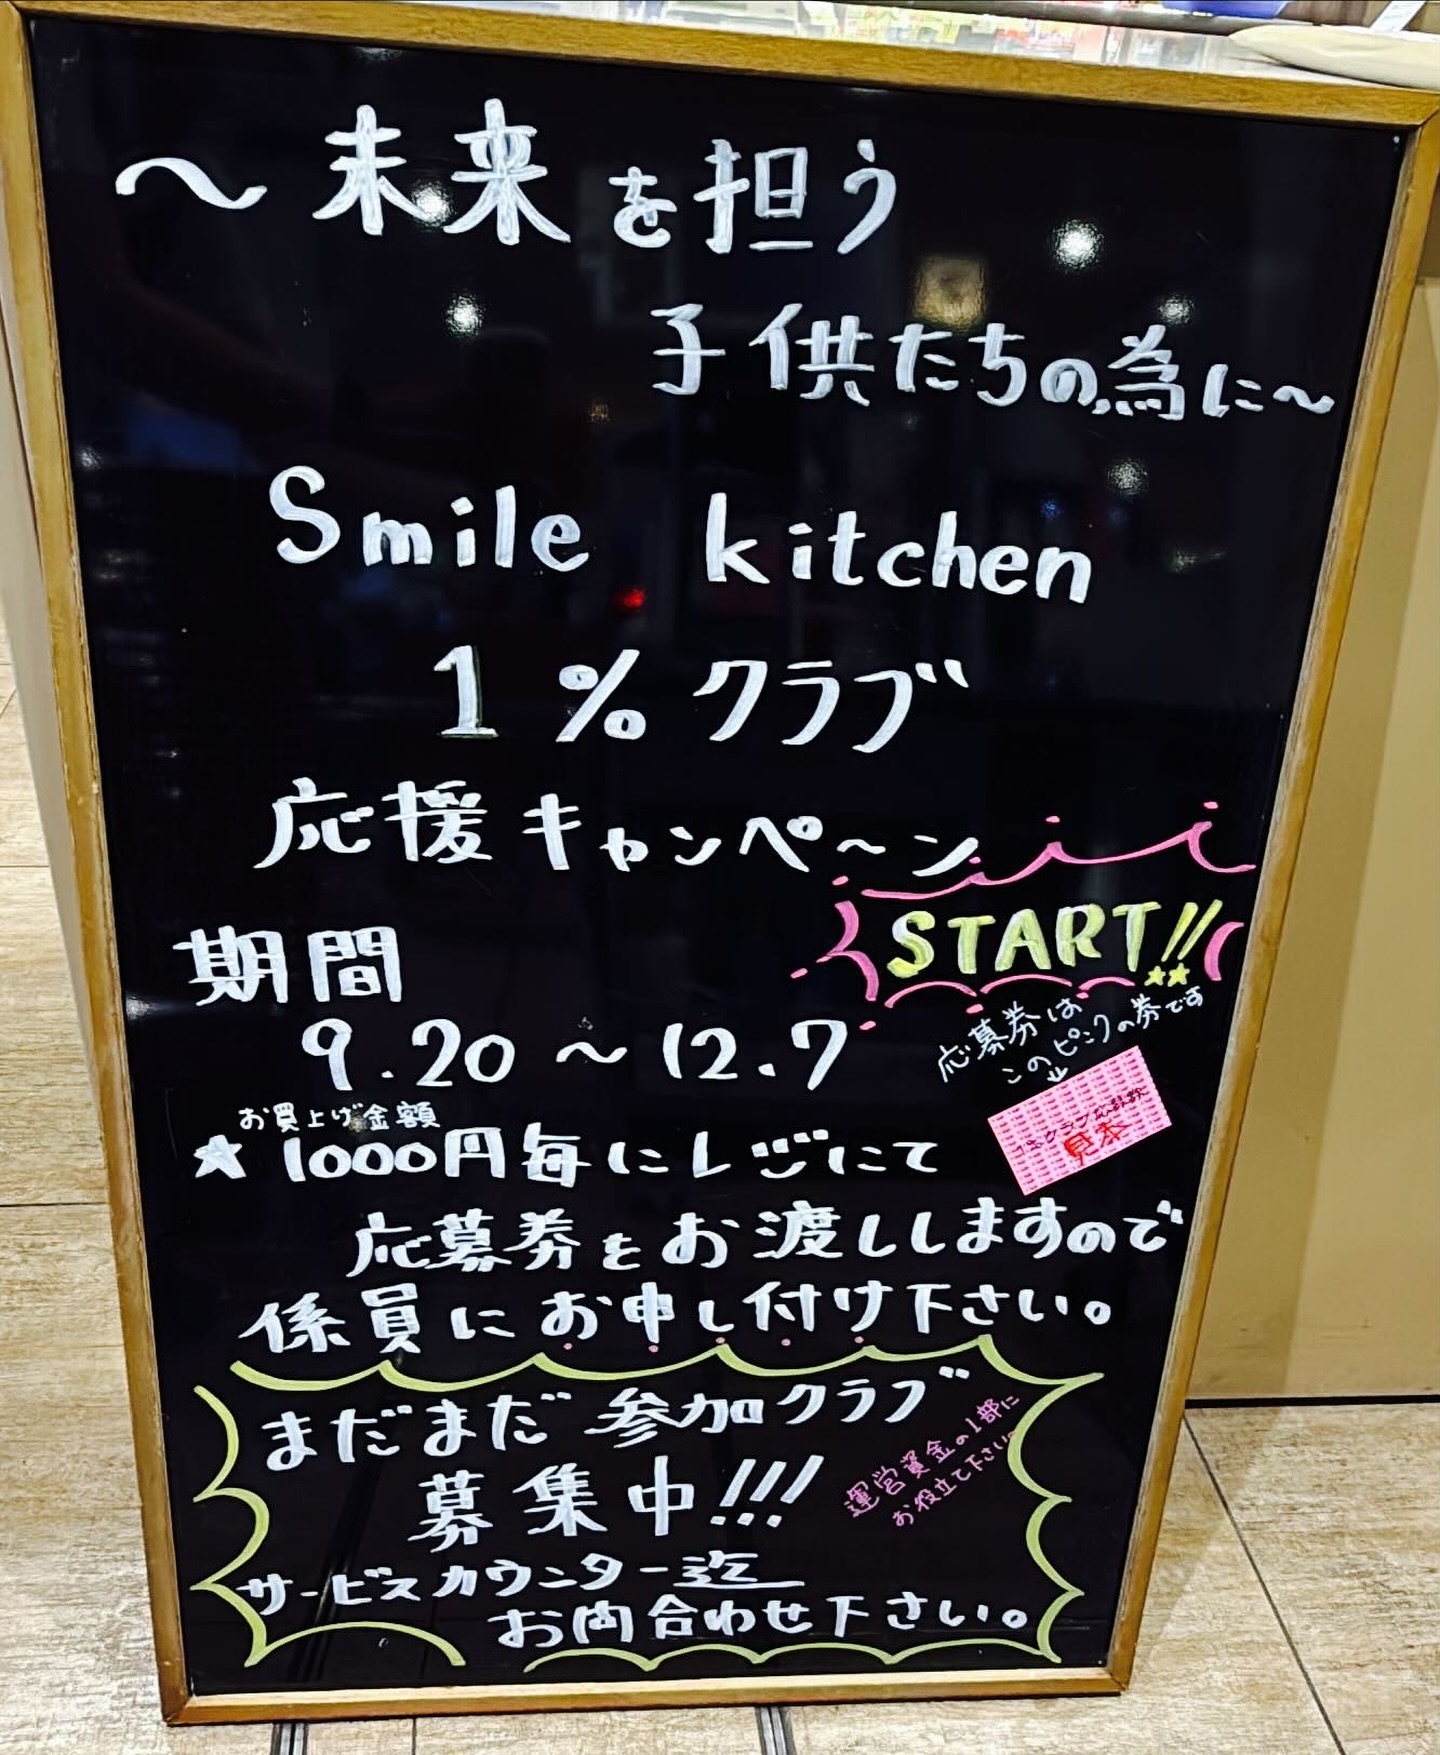 ～未来を担う
子供たちの為に～
Smile kitchen
1％クラブ
応援キャンペーン
START!!
期間
9.20～12.7
応募券は
このピンクの券です
1%クラブ応募券
見本
お買上げ金額
★1000円毎にレジにて
応募券をお渡ししますので
係員にお申し付け下さい。
まだまだ参加クラブ
募集中!!!
運営資金の1部に
お役立て下さい。
サービスカウンター迄
お問合わせ下さい。